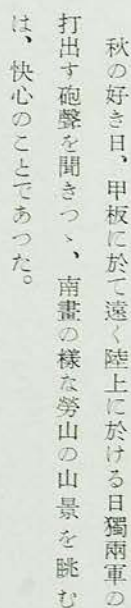 秋の好き日、甲板に於て遠く陸上に於ける日獨兩軍の
打出す砲聲を聞きつゝ、南畫の樣な勞山の山景を眺む
は、快心のことであつた。